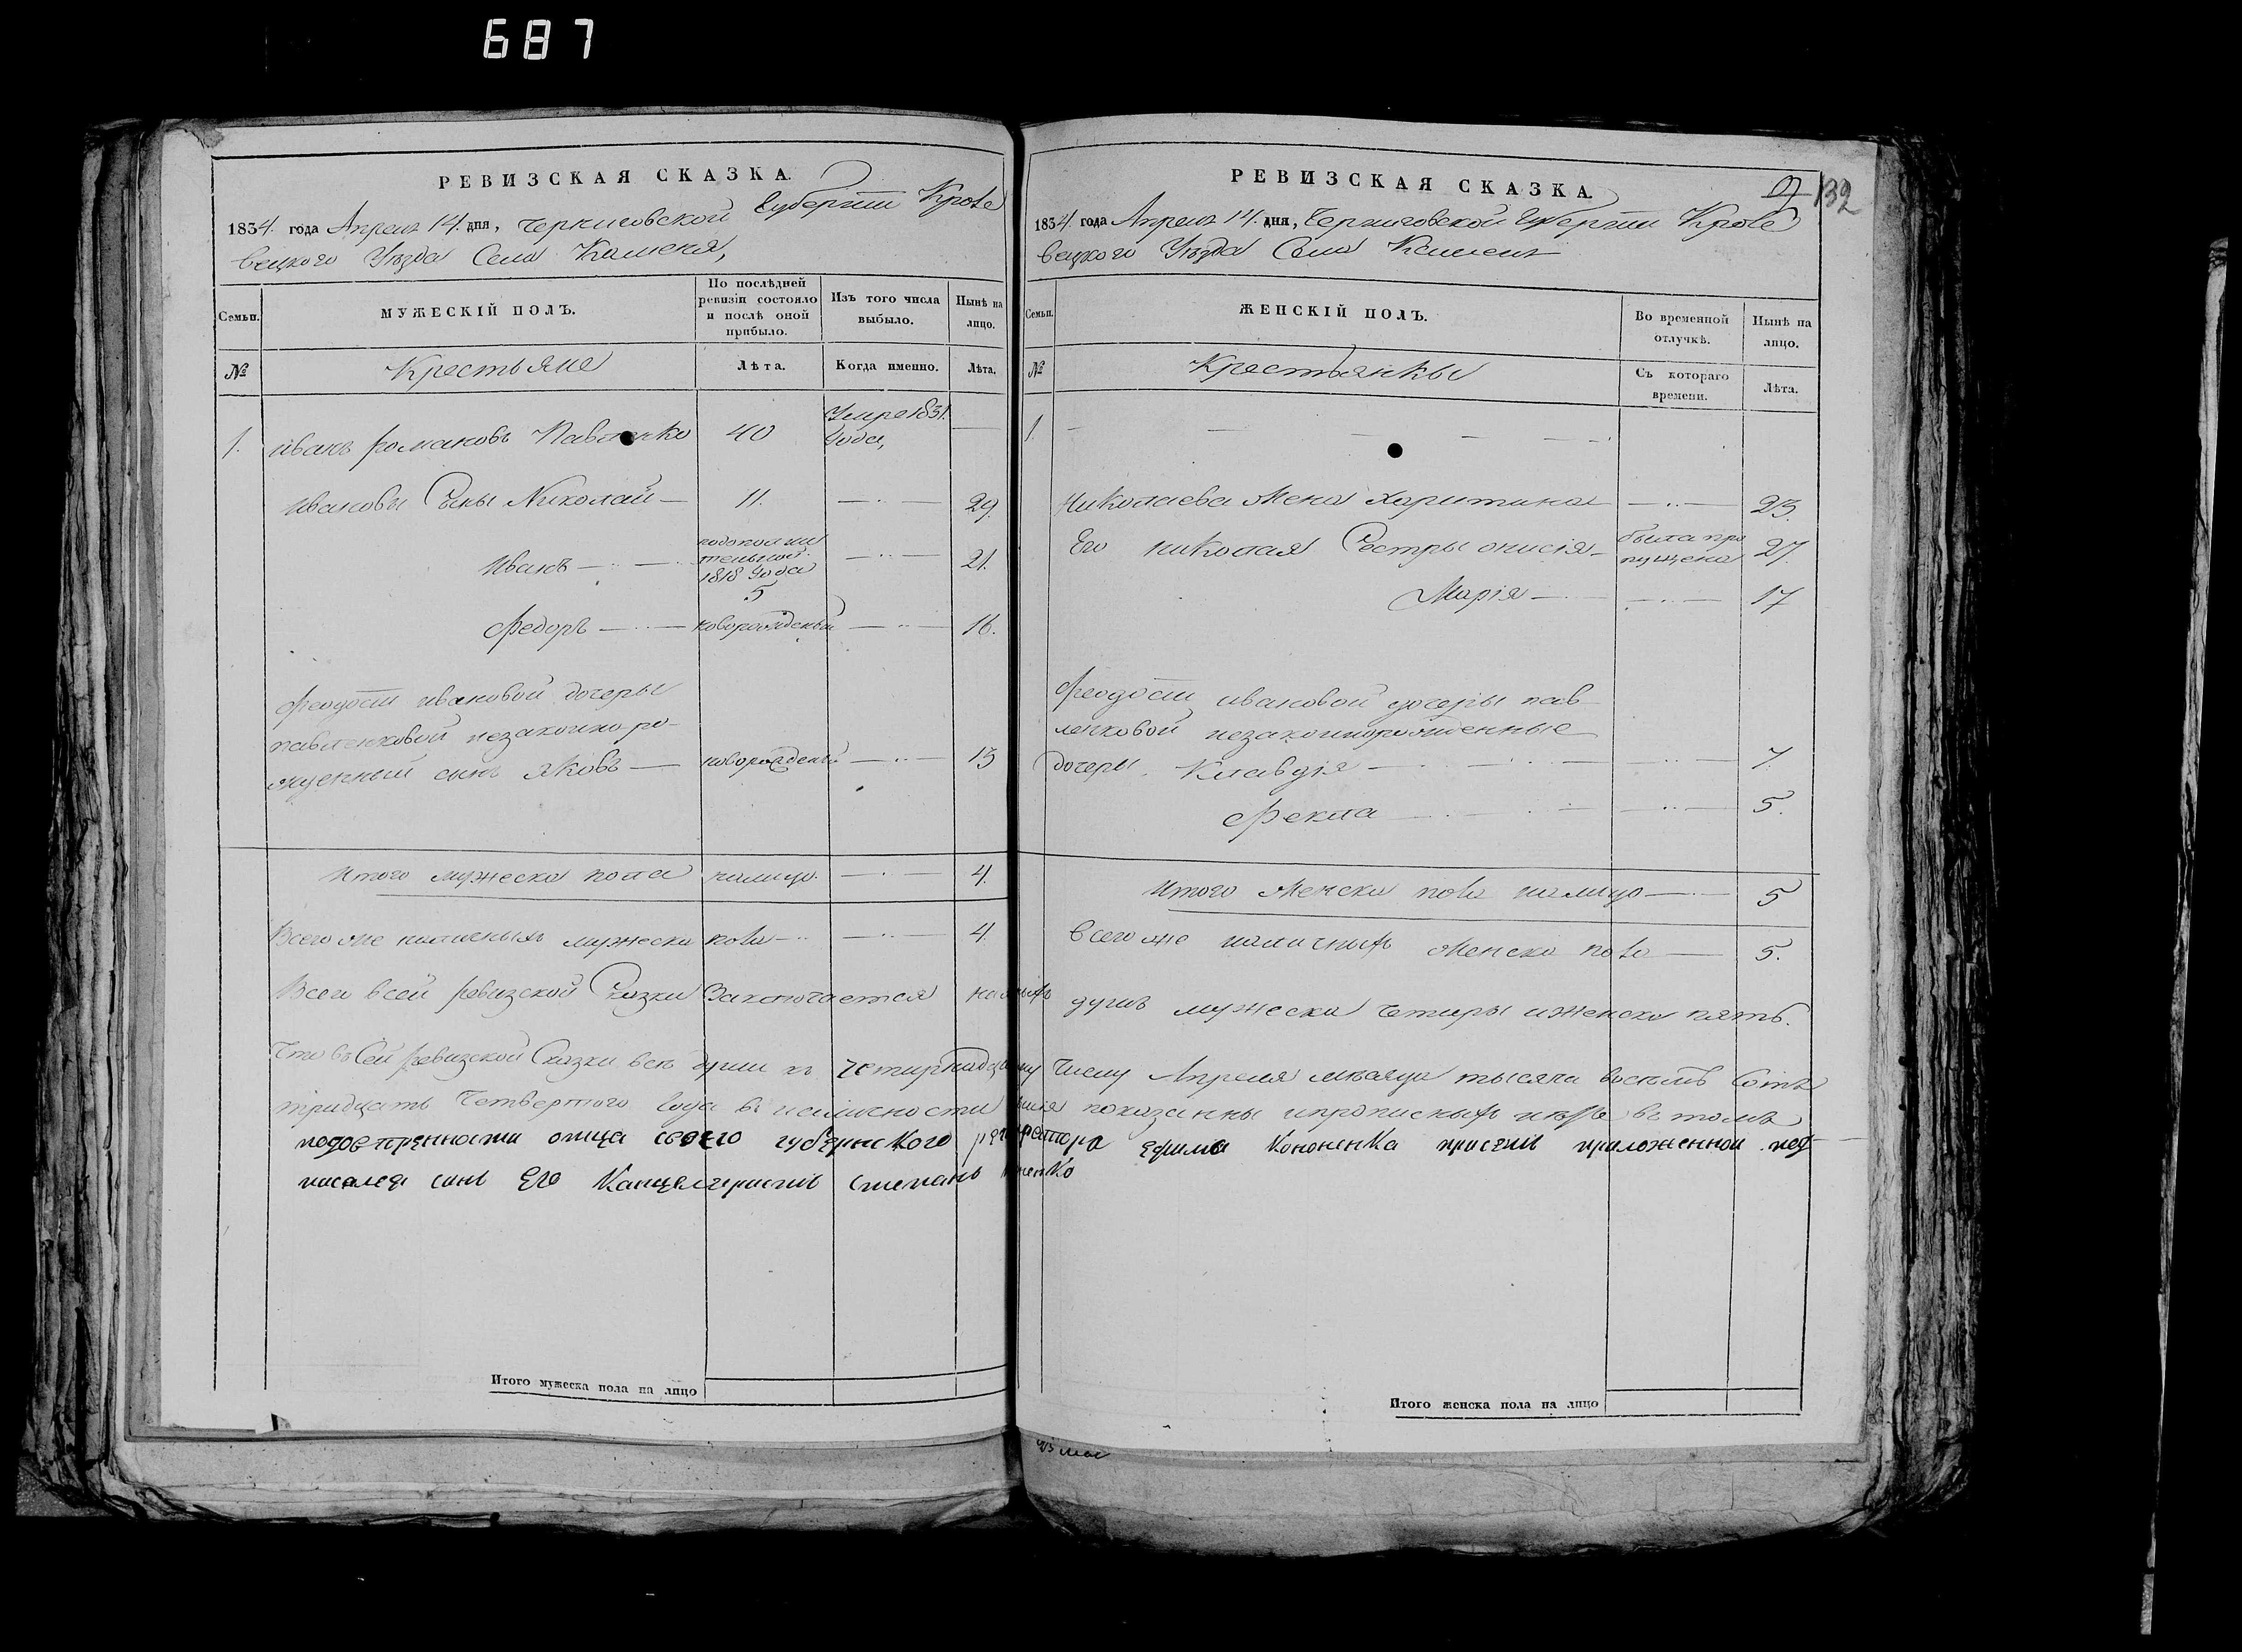 687
РЕВИЗСКАЯ СКАЗКА.
1834. года Апреля 14. дня, Черниговской Губернии Кроле
вецкого Уезда Села Камена,
Семьи.
МУЖЕСКІЙ ПОЛЪ.
По послѣдней ревизіи состояло и послѣ оной прибыло.
Изъ того числа выбыло.
Нынѣ на лицо.
№
Крестьяне
Лѣта.
Когда именно.
Лѣта.
1. иванъ романовъ Павленко 40 Умре 1831. Года,
ивановы Сыны Николай 11. 29.
Иванъ
тельной
1818 Года
5
21.
Федоръ новорожденый 16.
феодосіи ивановой дочеры
павленковой незаконно ро-
жденный сынъ яковъ новорожденый 13
Итого мужеска пола налицо. 4.
Всего же наличныхъ мужеска пола 4.
Всего всей ревизской Сказки Заключается
Что въ Сей ревизской Сказки все души къ
тридцать Четвертого Года в наличности
отца своего губернского
сынъ Его Канцеляристъ Степанъ
Итого мужеска пола на лицо
132
РЕВИЗСКАЯ СКАЗКА.
1834. года Апреля 14. дня, Черниговской Губернии Кроле
вецкого Уезда Села Каменя
Семьи.
ЖЕНСКІЙ ПОЛЪ.
Во временной отлучкѣ.
Нынѣ на лицо.
№
Крестьянкы
Съ котораго времени.
Лѣта.
1.
Николаева Жена Харитина 23.
Его николая Сестры онисія была про
пущена 27.
Марія 17
феодосіи ивановой дочеры пав
ленковой незаконнорожденные
дочеры Клавдія 7.
Фекла 5.
Итого Женска пола налицо 5
всего же наличныхъ Женска пола 5.
душъ мужеска четыры и женска пять.
Числу Апреля месяца тысяча восемъ Сотъ
показанны и прописныхъ нетъ в томъ
Ефима Кононенка приложенной под
Итого женска пола на лицо